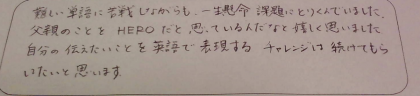 難しい単語に苦戦しながらも、一生懸命 課題にとりくんでいました。
父親のことを HEROだと思っているんだなと嬉しく思いました
自分の伝えたいことを英語で表現する チャレンジは続けてもら
いたいと思います